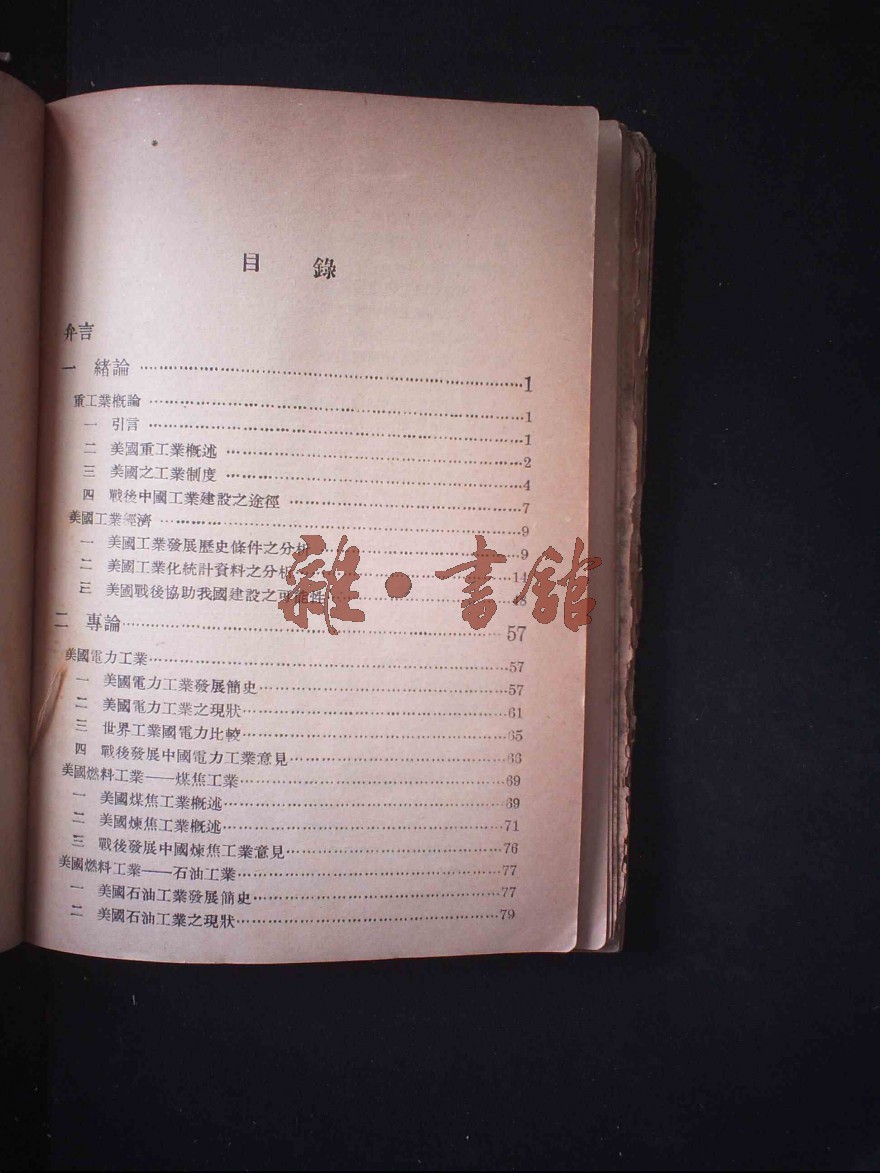 目 錄
弁言
一 緒論 1
重工業概論 1
一 引言 1
二 美國重工業概述 2
三 美國之工業制度 4
四 戰後中國工業建設之途徑 7
美國工業經濟 9
一 美國工業發展歷史條件之分析 9
二 美國工業化統計資料之分析 14
三 美國戰後協助我國建設之可能性 48
雜·書館
二 專論 57
美國電力工業 57
一 美國電力工業發展簡史 57
二 美國電力工業之現狀 61
三 世界工業國電力比較 65
四 戰後發展中國電力工業意見 66
美國燃料工業——煤焦工業 69
一 美國煤焦工業概述 69
二 美國煉焦工業概述 71
三 戰後發展中國煉焦工業意見 76
美國燃料工業——石油工業 77
一 美國石油工業發展簡史 77
二 美國石油工業之現狀 79